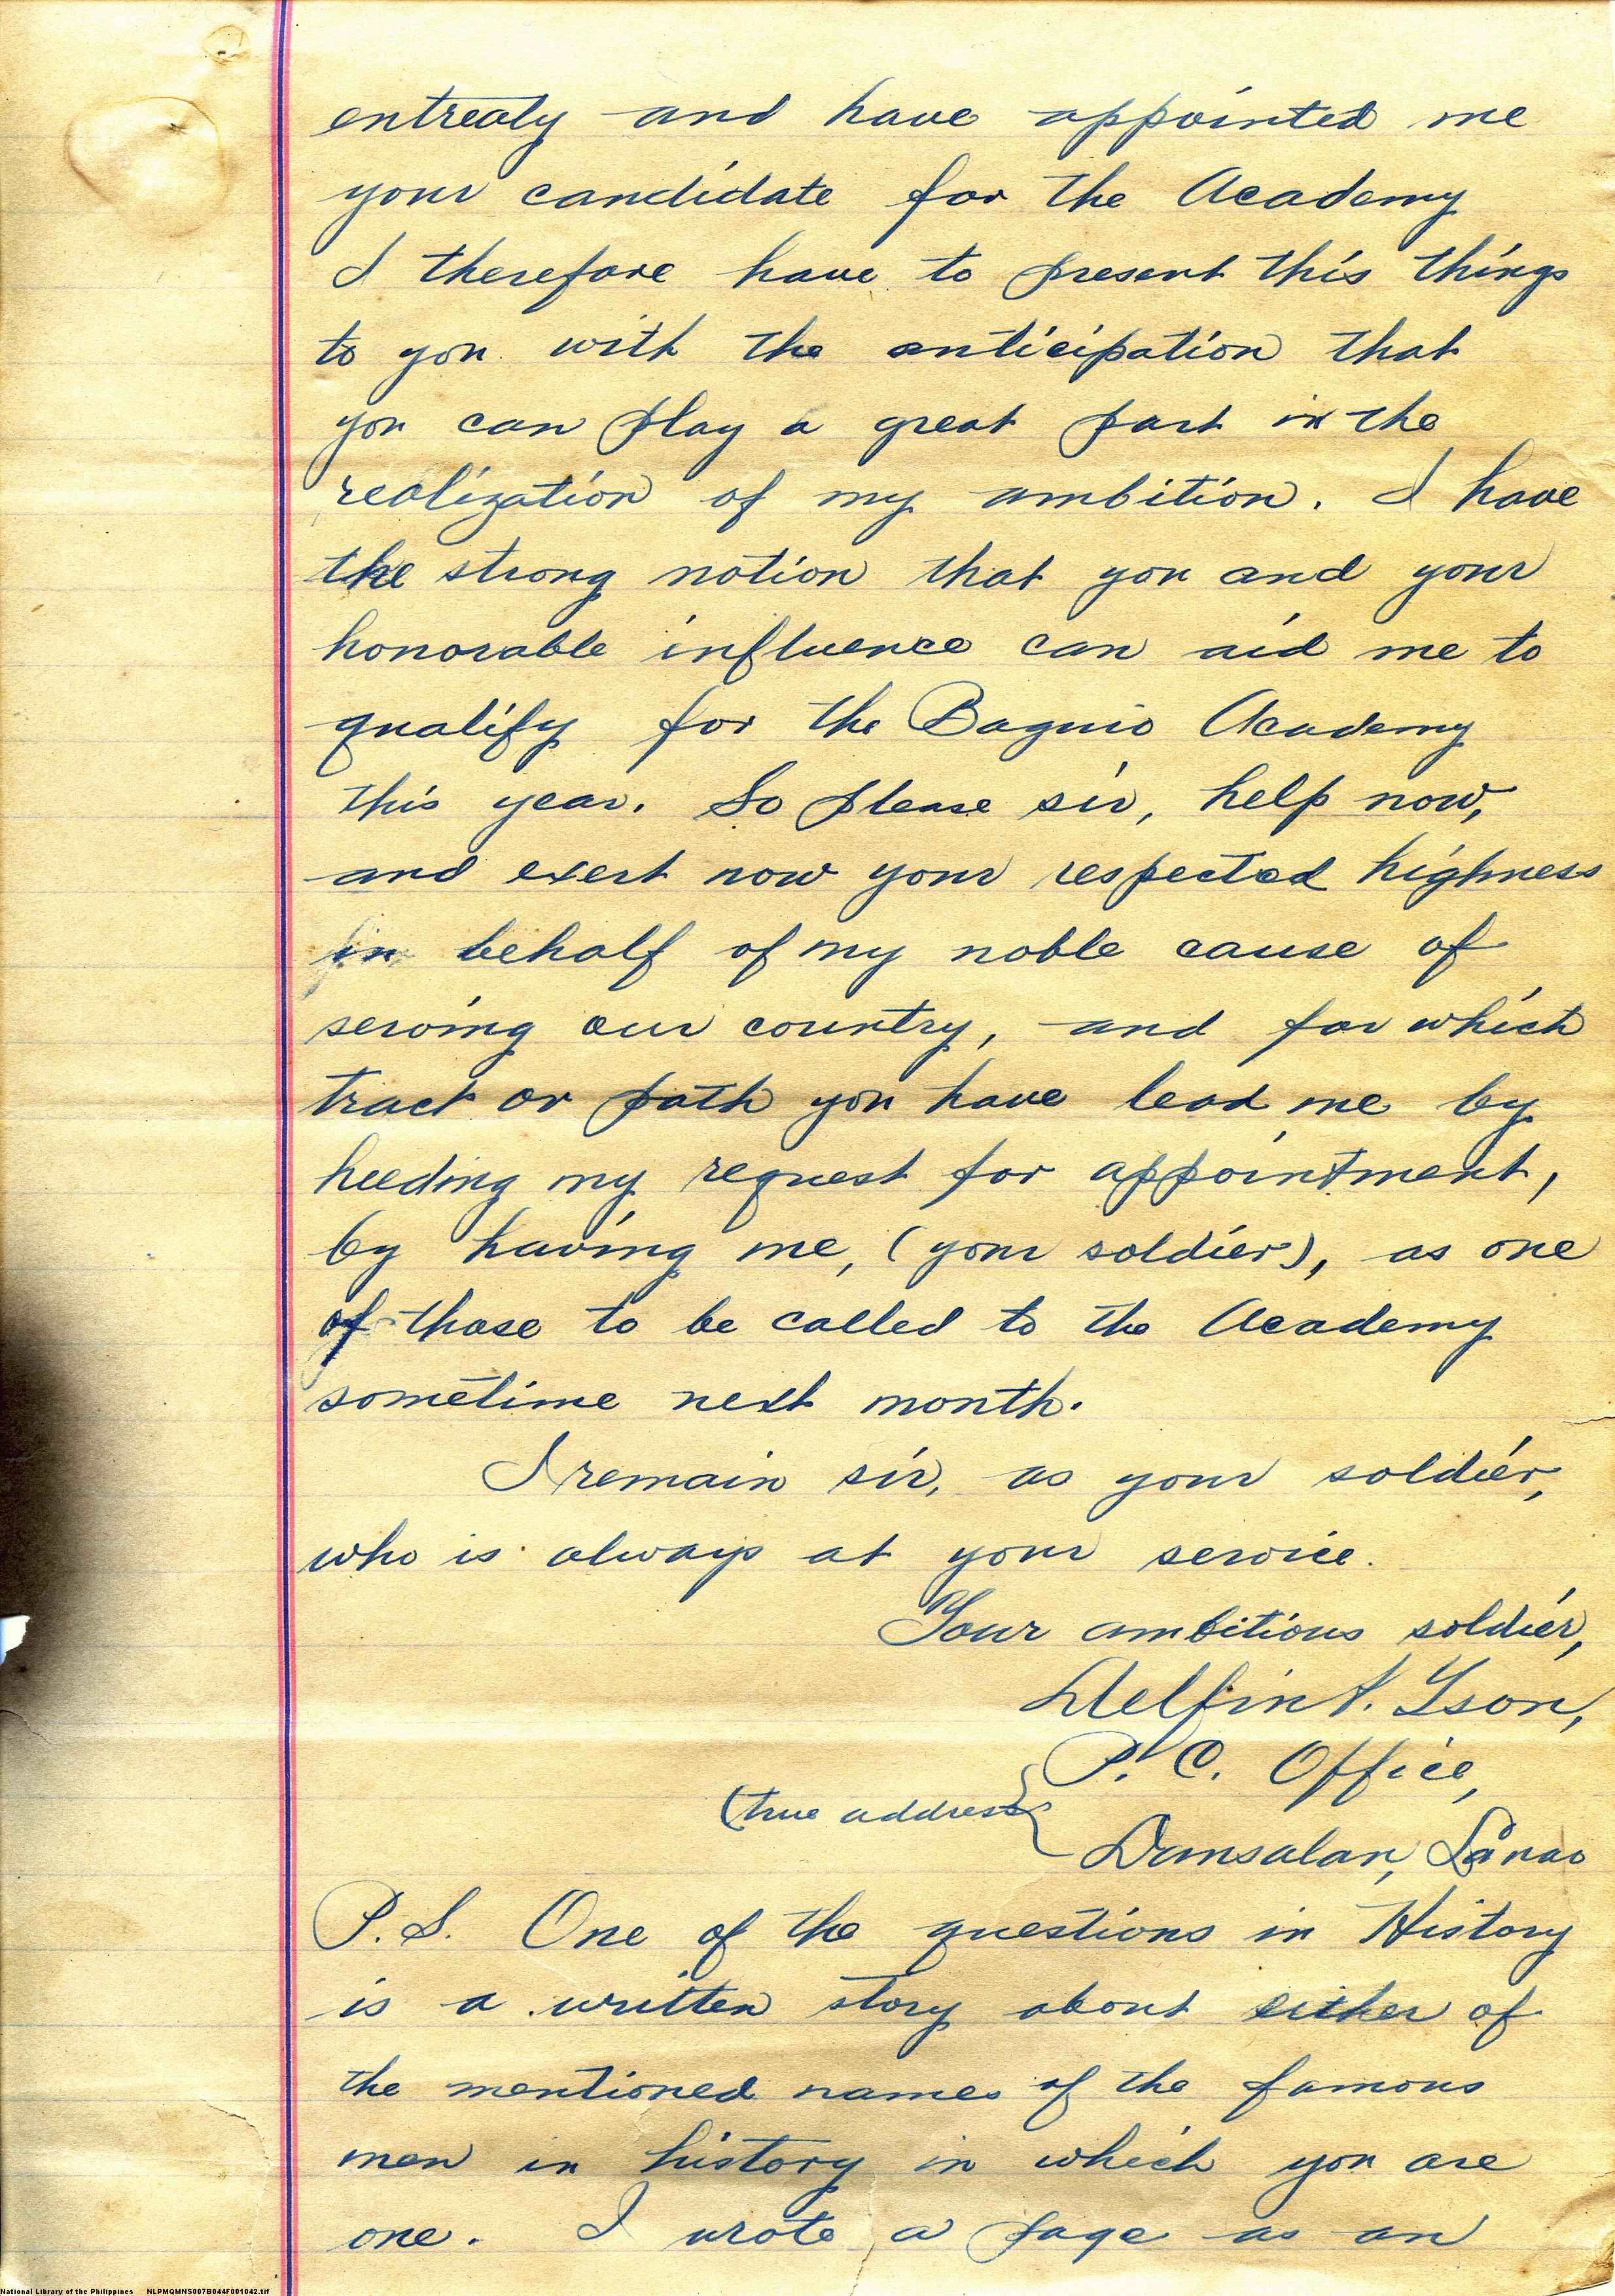 entreaty and have appointed me
your candidate for the Academy
I therefore have to present this things
to you with the anticipation that
you can play a great part in the
realization of my ambition. I have
the strong notion that you and your
honorable influence can aid me to
qualify for the Baguio Academy
this year. So please sir, help now,
and exert now your respected highness
in behalf of my noble cause of
serving our country, and for which
tract or path you have lead me by
heeding my request for appointment,
by having me, (your soldier), as one
of those to be called to the Academy
sometime next month.
I remain sir, as your soldier,
who is always at your service.
Your ambitious soldier,
Delfin Yson,
P. C. Office,
(true address
Dansalan, Lanao
P.S. One of the questions in History
is a written story about either of
the mentioned names of the famous
men in history in which you are
one. I wrote a page as an
National Library of the Philippines NLPMQMNS007B044F001042.tif